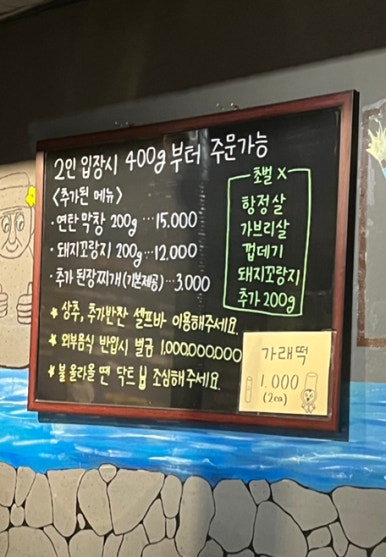 2인 입장시 400g부터 주문가능
<추가된 메뉴>
· 연탄 막창 200g ··· 15.000
· 돼지꼬랑지 200g ··· 12.000
· 추가 된장찌개 (기본제공) ··· 3.000
* 상추, 추가반찬 셀프바 이용해주세요.
* 외부음식 반입시 벌금 1,000,000,000
* 불 올라올 땐 닥트 조심해주세요.
초벌 X
항정살
가브리살
껍데기
돼지꼬랑지
추가 200g
가래떡
1.000
(2ea)